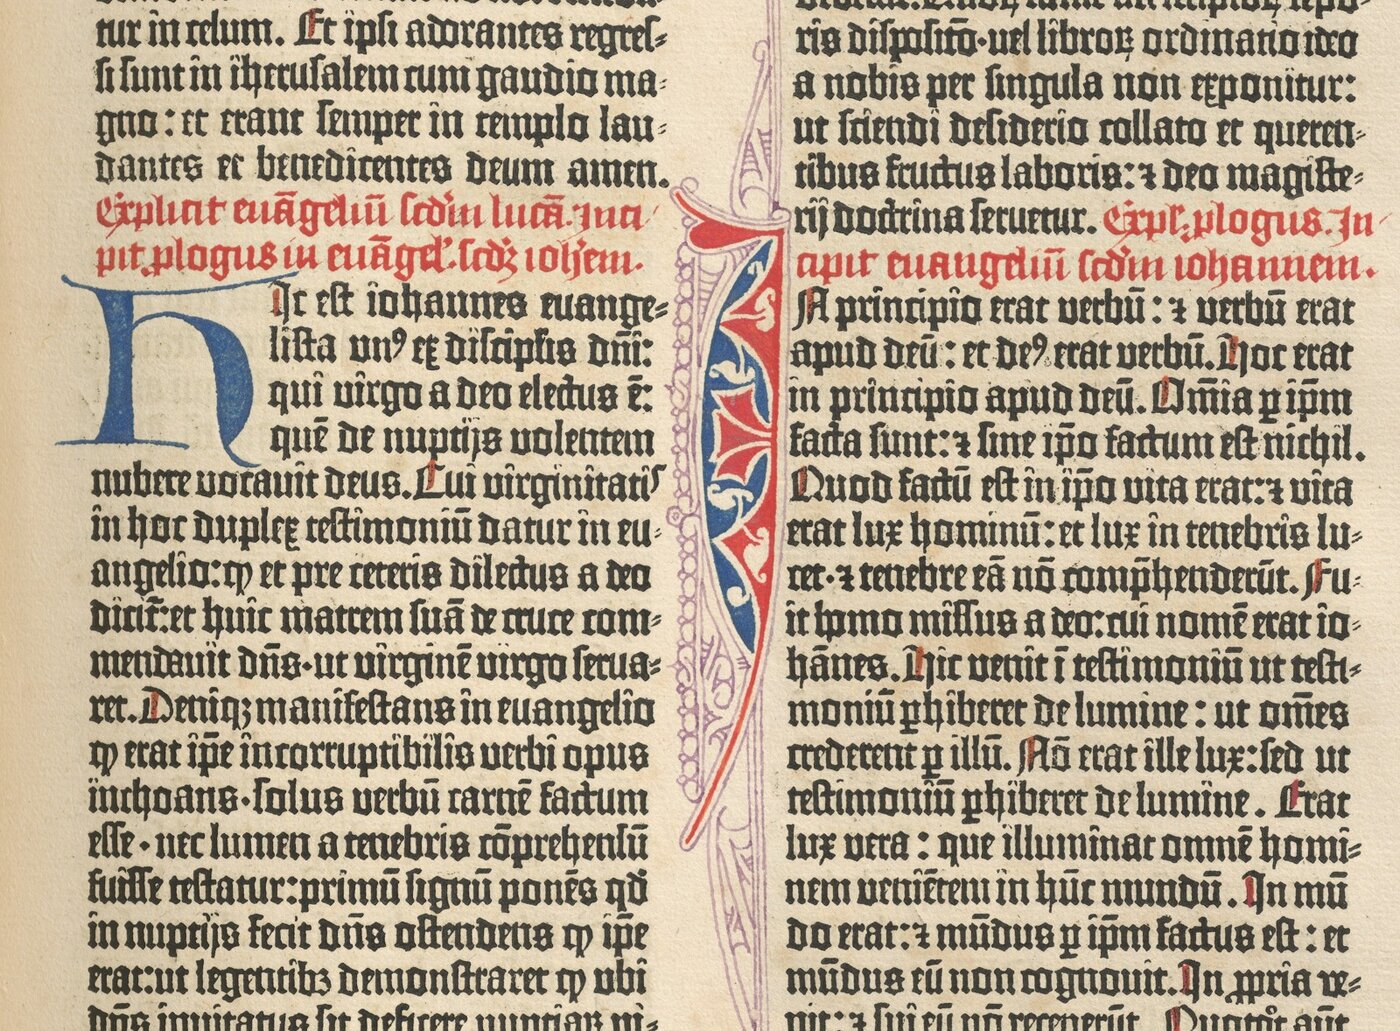 tur in celum. Et ipsi adorantes regres⸗
si sunt in iherusalem cum gaudio ma⸗
gno : et erant semper in templo lau⸗
dantes et benedicentes deum amen.
Explicit euāgeliū scd'm lucā. Inci⸗
pit ꝓlogus in euāgel'. scdꝫ ioh'em.
Hic est iohannes euange⸗
lista vnꝰ ex discipl̄is dn̄i:
qui virgo a deo electus ē:
quē de nuptijs volentem
nubere vocauit deus. Cui virginitatis
in hoc duplex testimoniū datur in eu⸗
angelio: ꝙ et pre ceteris dilectus a deo
dicit̄: et huic matrem suā de cruce com⸗
mendauit dn̄s · ut virginē virgo serua⸗
ret. Deniqꝫ manifestans in euangelio
ꝙ erat ip̄e incorruptibilis verbi opus
inchoans · solus verbū carnē factum
esse · nec lumen a tenebris cōprehensū
fuisse testatur: primū signū ponēs qd̄
in nuptijs fecit dn̄s ostendens ꝙ ip̄e
erat: ut legentibꝫ demonstraret ꝙ ubi
dn̄s inuitatus sit deficere nuptiaꝝ vi⸗
ris disposito · vel libroꝝ ordinatio ideo
a nobis per singula non exponitur:
ut sciendi desiderio collato et queren⸗
tibus fructus laboris: ⁊ deo magiste⸗
rij doctrina seruetur. Expl'. ꝓlogus. In⸗
cipit euangeliū scd'm iohannem.
IN principio erat verbū: ⁊ verbū erat
apud deū: et deꝰ erat verbū. Hoc erat
in principio apud deū. Om̄ia ꝑ ip̄m
facta sunt: ⁊ sine ip̄o factum est nichil.
Quod factū est in ip̄o vita erat: ⁊ vita
erat lux hominū: et lux in tenebris lu⸗
cet · ⁊ tenebre eā nō comp̄henderūt. Fu⸗
it homo missus a deo: cui nomē erat io⸗
hānes. Hic venit ī testimoniū ut testi⸗
moniū ꝑhiberet de lumine : ut om̄es
crederent ꝑ illū. Nō erat ille lux: sed ut
testimoniū ꝑhiberet de lumine . Erat
lux vera : que illuminat omnē homi⸗
nem veniētem in hūc mundū . In mū
do erat: ⁊ mūdus ꝑ ip̄m factus est : et
mūdus eū non cognouit. In ꝓpria ve⸗
nit: ⁊ sui eū non receperūt. Quotqͦt aūt